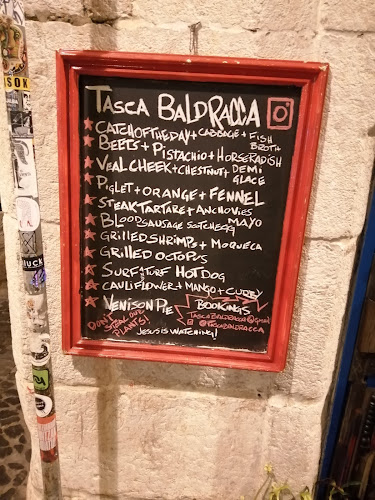 TASCA BALDRACCA
CATCH OF THE DAY + CABBAGE + FISH BROTH
BEETS + PISTACHIO + HORSERADISH
VEAL CHEEK + CHESTNUT + DEMI GLACE
PIGLET + ORANGE + FENNEL
STEAK TARTARE + ANCHOVIES MAYO
BLOOD SAUSAGE SCOTCH EGG
GRILLED SHRIMP + MOQUECA
GRILLED OCTOPUS
SURF & TURF HOT DOG
CAULIFLOWER + MANGO + CURRY
VENISON PIE
BOOKINGS
@TASCABALDRACCA
DON'T STEAL OUR PLANTS!
JESUS IS WATCHING!